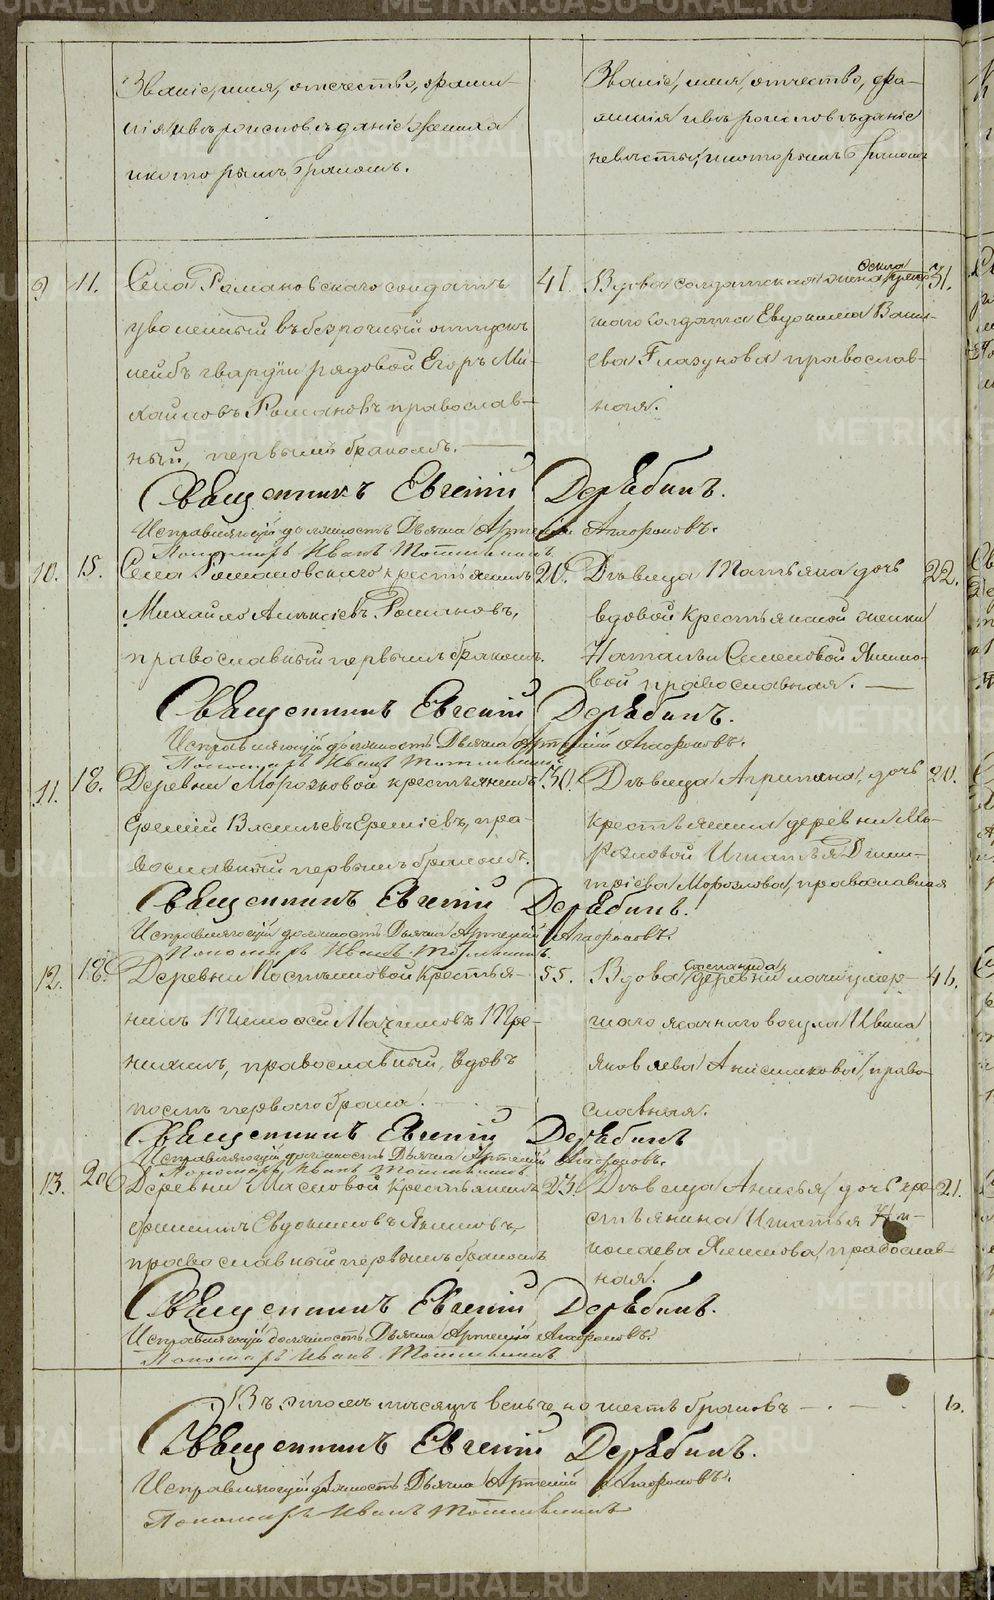 Званіе, имя, отчество, фами-
лія и вѣроисповѣданіе жениха
и которымъ бракомъ.
Званіе, имя, отчество, фа-
милія и вѣроисповѣданіе
невѣсты, и которымъ бракомъ
9 11. Села Романовскаго солдатъ
уволенный въ безсрочный отпускъ
лейбъ гвардіи рядовой Егоръ Ми-
хайловъ Романовъ православ-
ный, первымъ бракомъ.
41.
Вдова солдатская жена
наго солдата Евдокима Васил-
ева Глазунова православ-
ная.
31.
Священникъ Евгеній Дерябинъ.
Исправляющій должность Дьячка Артемій Агафоновъ.
Пономарь Иванъ
10. 15. Села Романовскаго крестьянинъ
Михайло Алексѣевъ
православный первымъ бракомъ.
20.
Дѣвица Татьяна дочь
вдовой крестьянской женки
Натальи Семеновой Якимо-
вой православная.
22.
Священникъ Евгеній Дерябинъ.
Исправляющій должность Дьячка Артемій Агафоновъ.
Пономарь Иванъ
11. 18. Деревни Морозковой крестьянинъ
Еремій Васильевъ Еремѣевъ, пра-
вославный первымъ бракомъ.
30.
Дѣвица Агрипина, дочь
крестьянина деревни Мо-
розковой Игнатья Дими-
тріева Морозкова, православная
20.
Священникъ Евгеній Дерябинъ.
Исправляющій должность Дьячка Артемій Агафоновъ.
Пономарь Иванъ
12. 18. Деревни крестья-
нинъ Тимофей Максимовъ
православный, вдовъ
послѣ перваго брака.
55.
Степанида
Вдова деревни умер-
шаго ясачнаго вогула Ивана
Яковлева право-
славная.
46.
Священникъ Евгеній Дерябинъ
Исправляющій должность Дьячка Артемій Агафоновъ.
Пономарь Иванъ
13. 20 Деревни Масловой крестьянинъ
Филиппъ Евдокимовъ Якимовъ,
православный первымъ бракомъ
23.
Дѣвица Анисья, дочь кре-
стьянина Игнатья Ни-
колаева Якимова, православ-
ная.
21.
Священникъ Евгеній Дерябинъ.
Исправляющій должность Дьячка Артемій Агафоновъ.
Пономарь Иванъ
Въ этомъ мѣсяцѣ венчено шесть браковъ 6.
Священникъ Евгеній Дерябинъ.
Исправляющій должность Дьячка Артемій Агафоновъ.
Пономарь Иванъ
METRIKI.GASO-URAL.RU